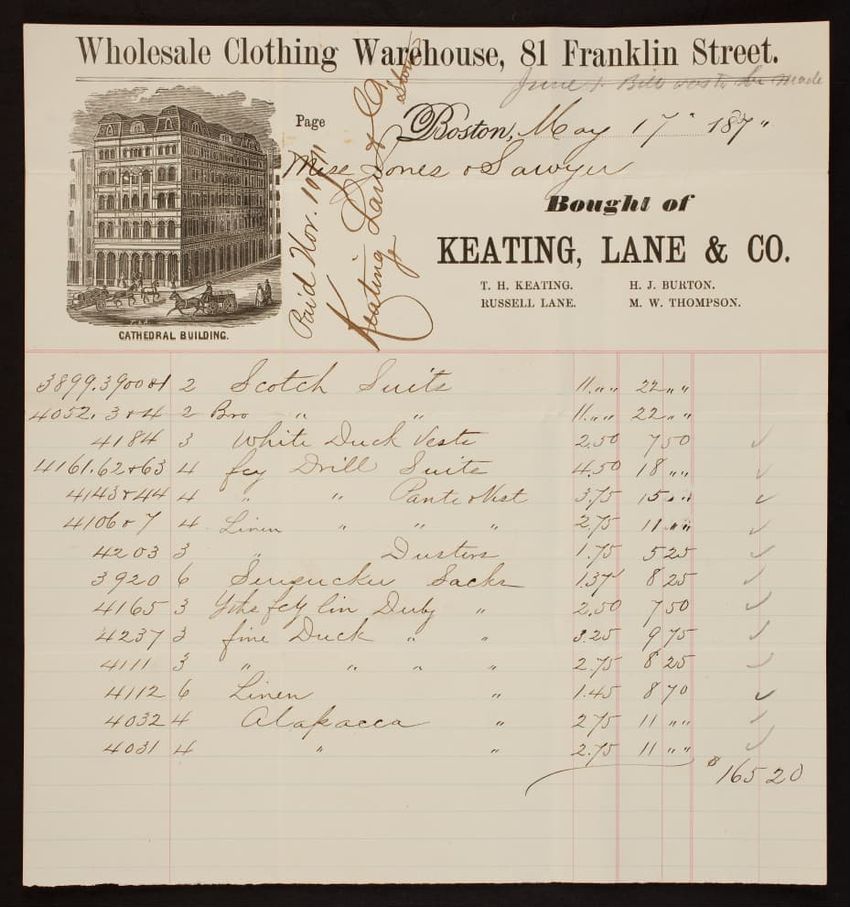 Wholesale Clothing Warehouse, 81 Franklin Street.
June 1. Bill to be made
Page
Boston, May 17" 187"
Jones & Sawyer
Bought of
KEATING, LANE & CO.
T. H. KEATING. H. J. BURTON.
RUSSELL LANE. M. W. THOMPSON.
CATHEDRAL BUILDING.
Paid Nov. 10/71
Keating Lane & Co
3899.3900&1 2 Scotch Suits 11.„„ 22„„
4052.3&4 2 Bro " " 11.„„ 22„„
4184 3 White Duck Vests 2.50 7 50
4161.62&63 4 fcy Drill Suits 4.50 18 „„
4143&44 4 " " Pant & Vest 3.75 15 „„
4106&7 4 Linen " " " 2.75 11 „„
4203 3 " Dusters 1.75 5 25
3920 6 Seersucker Sacks 1.37½ 8 25
4165 3 fcy lin " 2.50 7 50
4237 3 fine Duck " " 3.25 9 75
4111 3 " " " " 2.75 8 25
4112 6 Linen " 1.45 8 70
4032 4 Alapacca " 2 75 11 „„
4031 4 " " 2.75 11 „„
$165 20